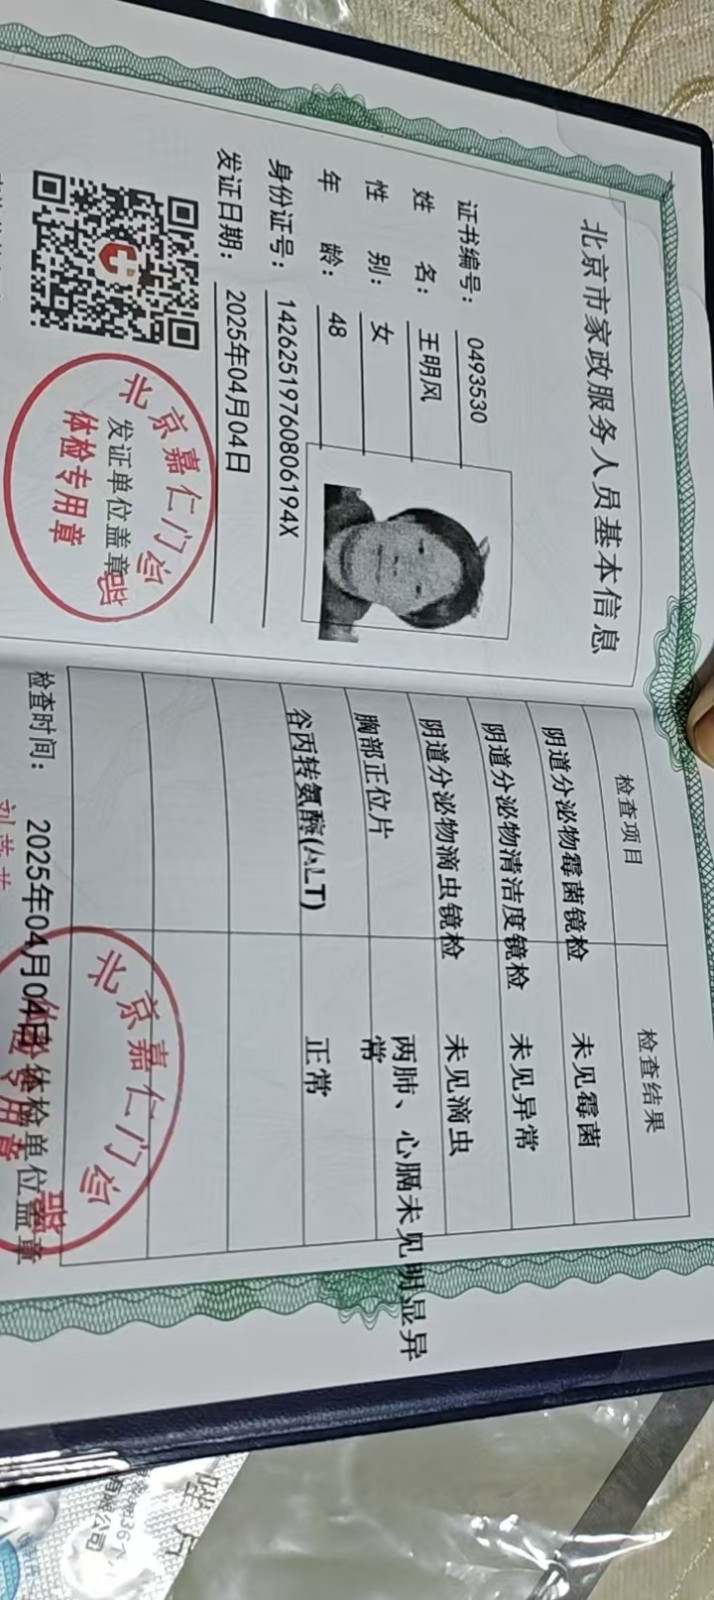 北京市家政服务人员基本信息
证书编号： 0493530
姓 名： 王明风
性 别： 女
年 龄： 48
身份证号： 14262519760806194X
发证日期： 2025年04月04日
北京嘉仁门诊部
发证单位盖章
体检专用章
检查项目 检查结果
阴道分泌物霉菌镜检 未见霉菌
阴道分泌物清洁度镜检 未见异常
阴道分泌物滴虫镜检 未见滴虫
胸部正位片 两肺、心膈未见明显异
常
谷丙转氨酶(ALT) 正常
检查时间： 2025年04月04日
体检单位盖章
北京嘉仁门诊部
体检专用章
有限公司